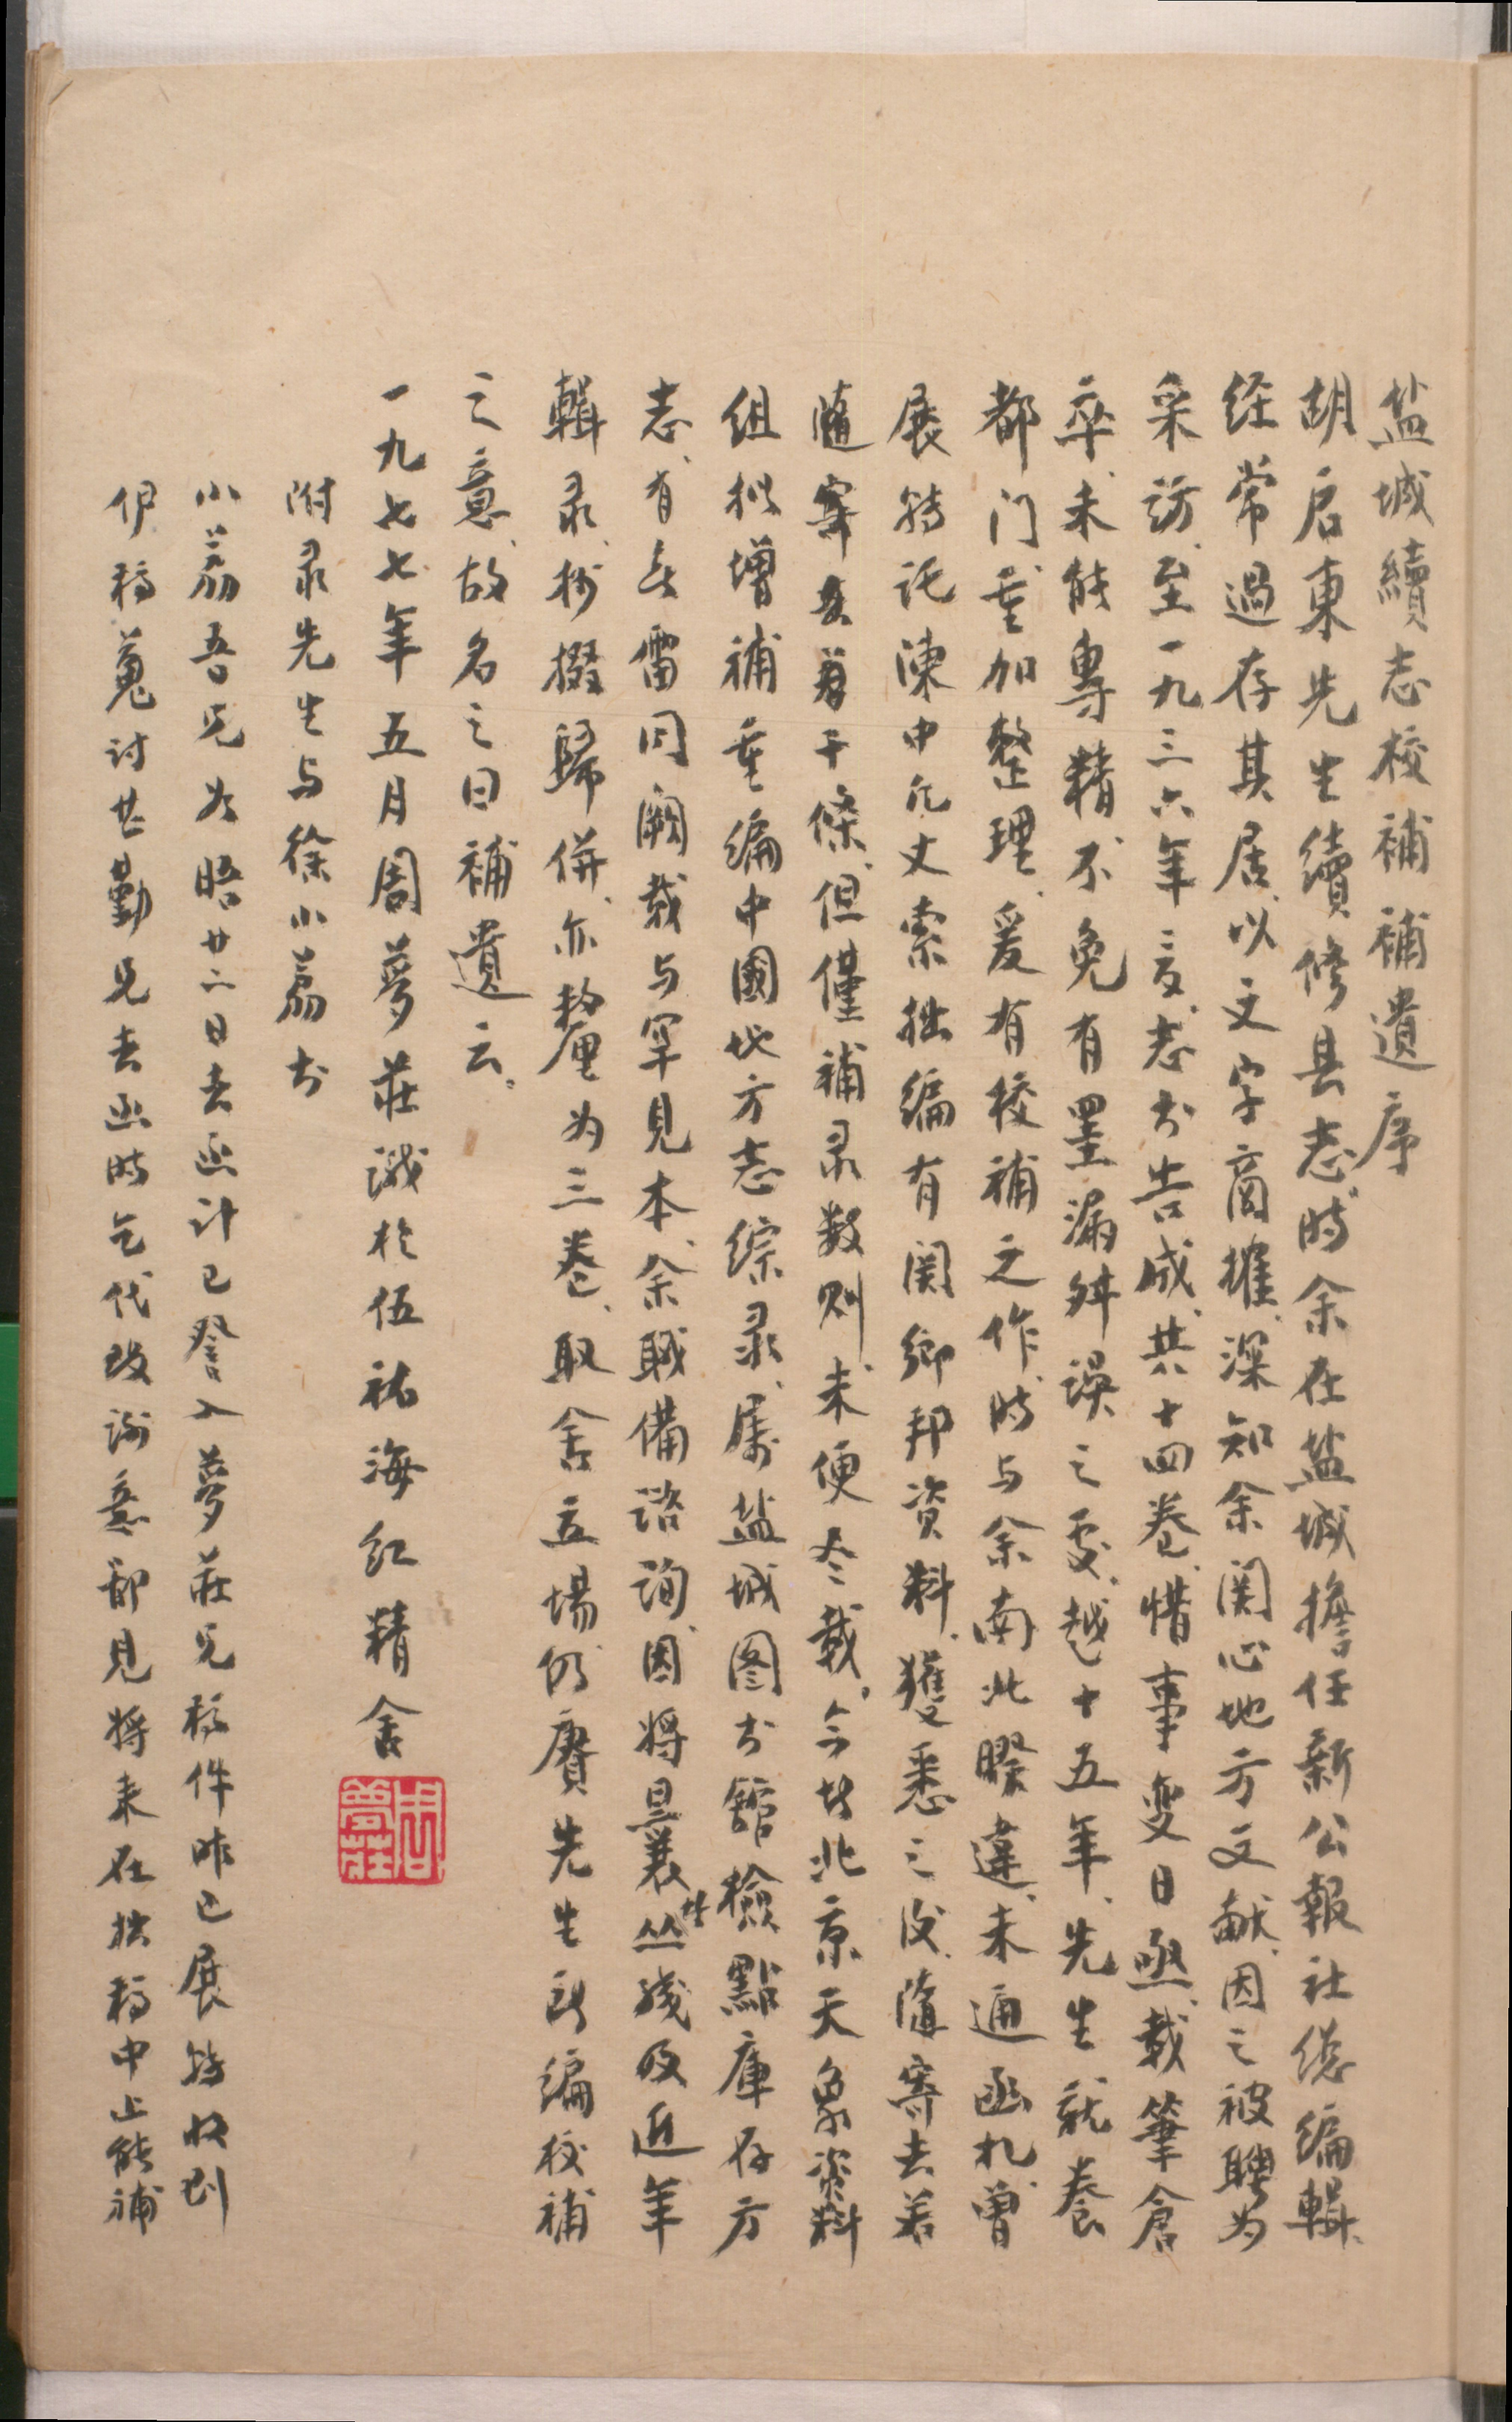 盐城續志校補補遺序
胡启東先生續修县志、时余在盐城擔任新公報社總編輯、
经常過存其居、以文字商搉、深知余関心地方文献、因之被聘为
采訪、至一九三六年夏、志书告成、共十四卷、惜事变日亟、载筆倉
卒、未能專精、不免有罣漏舛誤之处、越十五年、先生就養
都门、重加整理、爰有校補之作、时与余南北暌違、未通函札、曾
展转託陳中凡丈索拙编有関鄉邦资料、獲悉之後、隨寄去若
隨寄去若干條、但僅補录数则、未便尽载、今者北京天象资料
组拟增補重编中國地方志综录、属盐城图书館檢點庫存方
志、有无雷同闕载与罕見本、余职備諮詢、因将曩者丛残及近年
輯录、抄掇歸併、亦釐为三卷、取舍立場仍賡先生所编校補
之意、故名之曰補遺云。
一九七七年五月周夢莊识於伍祐海红精舍
周夢莊
附录先生与徐小荔书
小荔吾兄如晤廿二日去函计已詧入夢莊兄稿件昨已展转收到
伊稿蒐讨甚勤兄去函时乞代致谢意鄙見将来在拙稿中止能補